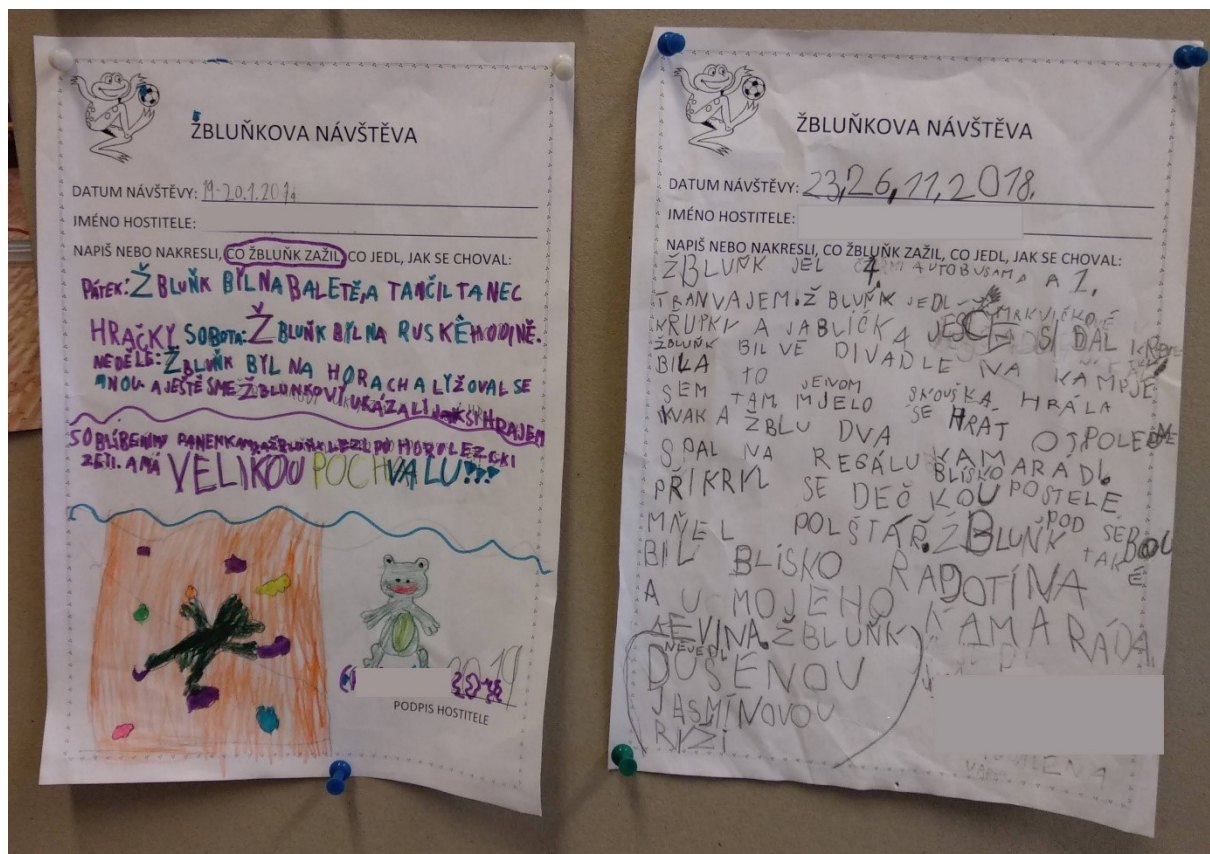 ŽBLUŇKOVA NÁVŠTĚVA
DATUM NÁVŠTĚVY: 19-20.1.201
JMÉNO HOSTITELE:
NAPIŠ NEBO NAKRESLI, CO ŽBLUŇK ZAŽIL, CO JEDL, JAK SE CHOVAL:
PÁTEK: ŽBLUŇK BÝL NA BALETĚ, A TANČIL TANEC
HRAČKY SOBOTA: ŽBLUNK BÝL NA RUSKÉ HODINĚ.
NEDĚLE: ŽBLUNK BYL NA HORACH A LYŽOVAL SE
MNOU A JEŠTĚ SME ŽBLUNKOVI UKÁZALI JAK SI HRAJEM
S OBLÍBENÍMY PANENKAMA ŽBLUŇK LEZL PO HOROLEZECKI
ZETI. A MÁ VELIKOU POCHVALU!!!
2019
PODPIS HOSTITELE
ŽBLUŇKOVA NÁVŠTĚVA
DATUM NÁVŠTĚVY: 23,26,11,2018.
JMÉNO HOSTITELE:
NAPIŠ NEBO NAKRESLI, CO ŽBLUŇK ZAŽIL, CO JEDL, JAK SE CHOVAL:
ŽBLUŇK JEL 4 AUTOBUSAMA A 1.
TRANVAJEM. ŽBLUŇK JEDL
KRUPKY A JABLÍČKA JEŠTĚ SI DAL
ŽBLUŇK BIL VE DIVADLE NA KAMPJE
BILA TO JENOM SKOUŠKA HRÁLA
SEM TAM MJELO SE HRÁT
KVAK A ŽBLU DVA OTPOLEDNE
SPAL NA REGÁLU KAMARADI
PŘIKRIL SE DEČKOU BLÍSKO POSTELE
MŇEL POLŠTÁŘ. ŽBLUŇK POD SEBOU
BIL BLÍSKO RADOTÍNA TAKÉ
A U MOJEHO KAMARÁDA
KEVINA. ŽBLUŇK
NEJEDL
DUŠENOU
JASMÍNOVOU
RYŽI